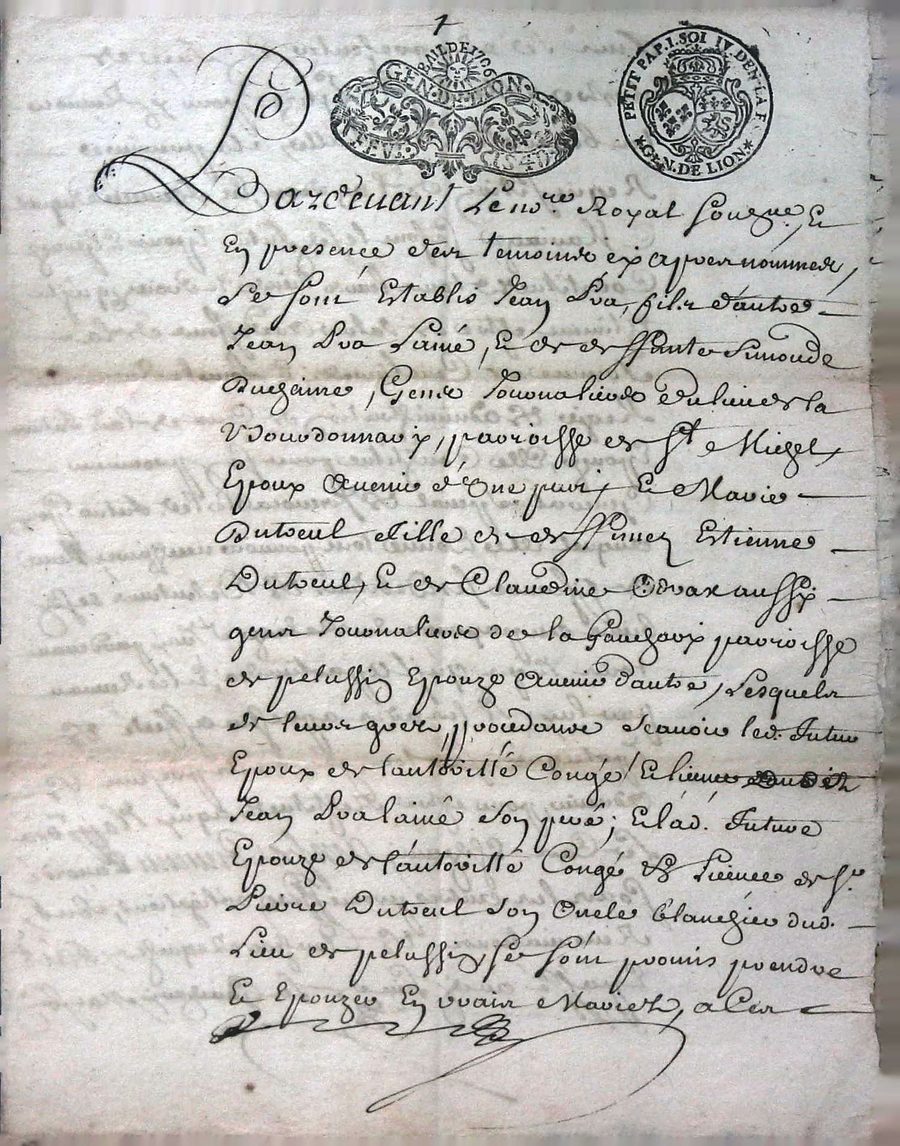 1
BAIL DE 1706
GEN. DE LION.
PETIT PAP. I. SOL IV DEN. LA F.
GEN. DE LION
Pardevant Le no.re Royal sousg.né, Et
En presence des temoins cy apres nommés,
Se sont Establis Jean Pra, fils d'autre
Jean Pra Lainé, Et de deffunte Simonde
Gens Journaliers du lieu de la
Bourdonnaux, parroisse de St Michel,
Epoux avenir d'Une part, Et Marie
Duteuil fille de deffunct Estienne
Duteuil, Et de Claudine aussy
gens Journaliers de la parroisse
de pelussin Epouze avenir d'autre, Lesquels
de leurs grez, procedants scavoir led. futur
Epoux de l'autorité Congé Et licence dudit
Jean Pra lainé son pere; Et lad. future
Epouze de l'autorité Congé & licence de Sr.
Pierre Duteuil son Oncle dud.
Lieu de pelussin, se sont promis prendre
Et Epouzer En vrais Maries, a Ces